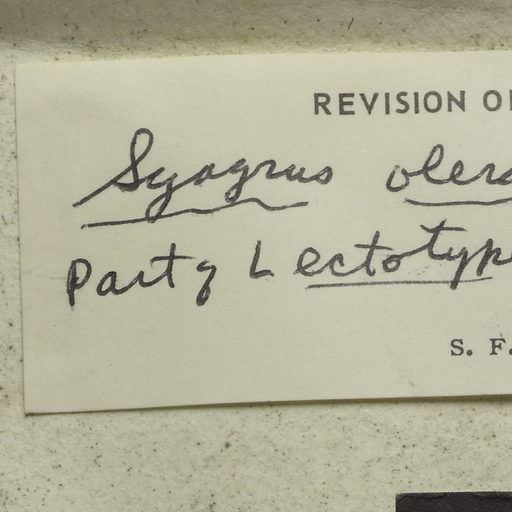 REVISION O
Syagrus olera
Part of Lectotype
S. F.